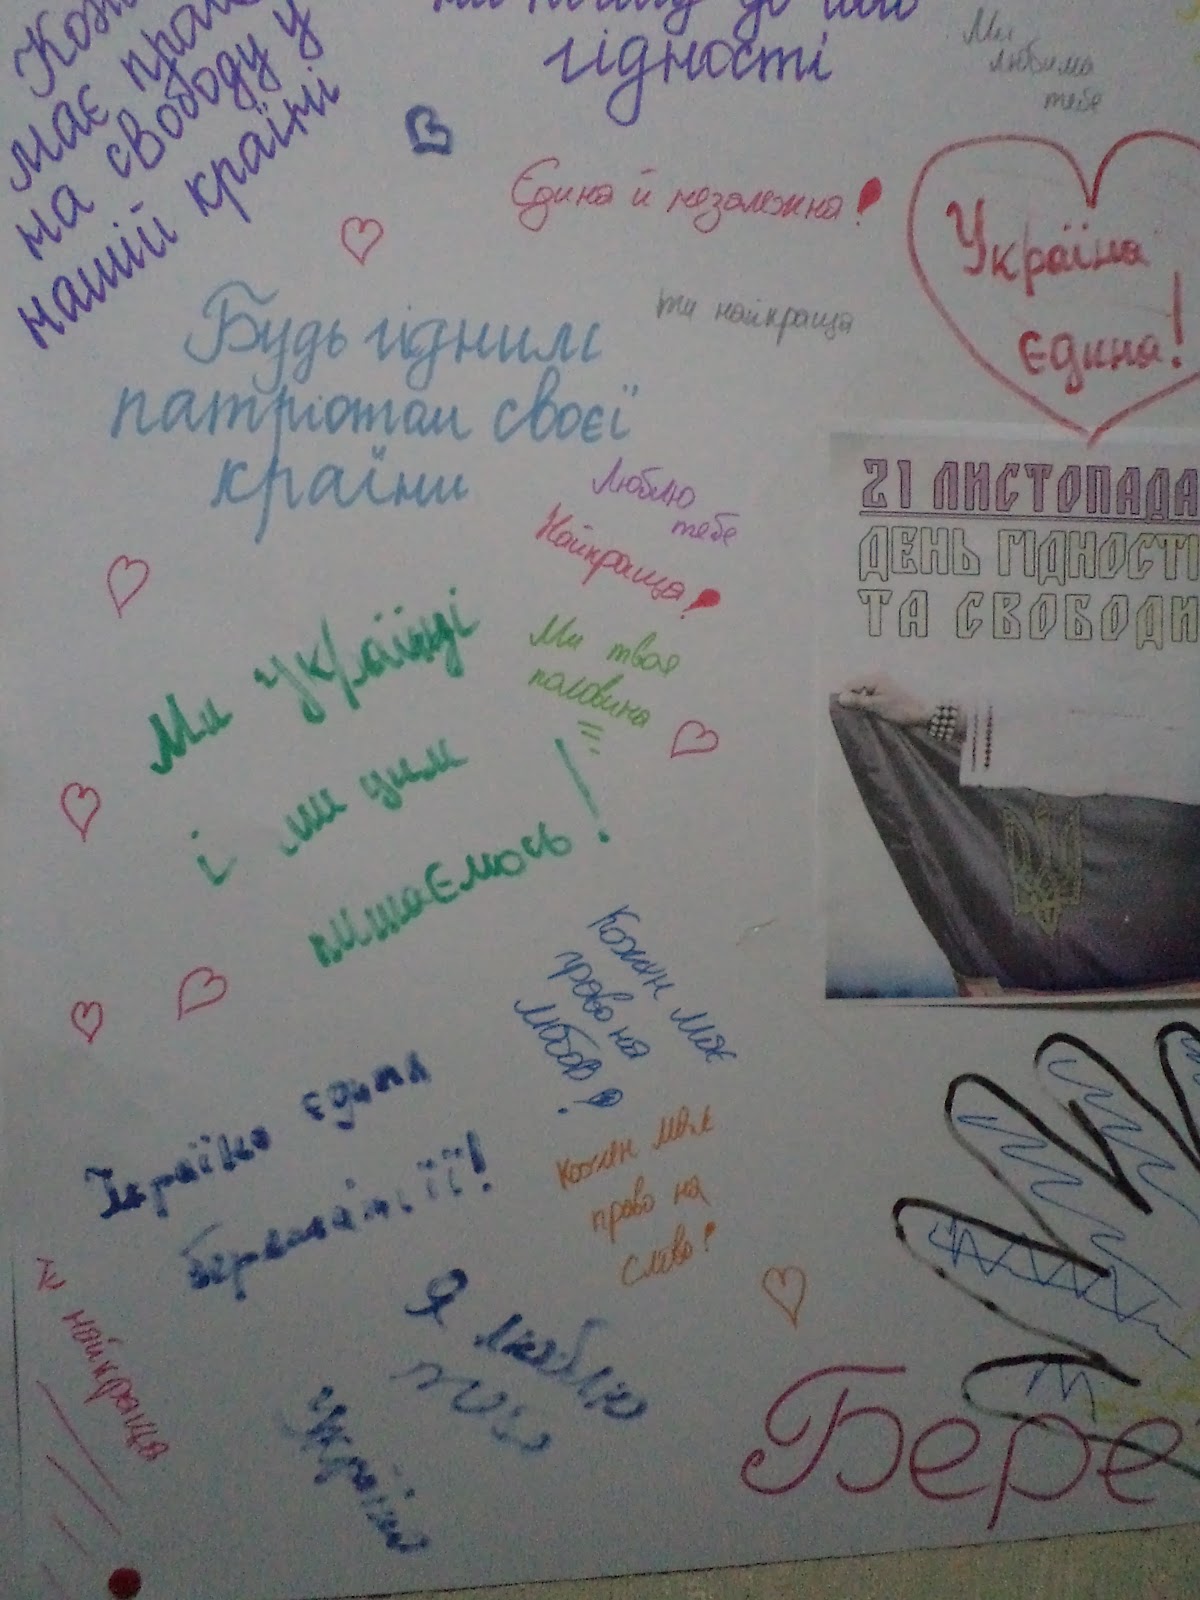 має
на свободу у
нашій країні
гідності
Ми
любимо
тебе
Єдина й незалежна!
Україна
єдина!
ти найкраща
Будь гідним
патріотом своєї
країни
21 ЛИСТОПАДА
ДЕНЬ ГІДНОСТІ
ТА СВОБОДИ
Люблю
тебе
Найкраща!
Ми твоя
половина
Ми Українці
і ми цим
пишаємось!
Кожен має
право на
Любов!
Україна єдина
бережіть її!
Кожен має
право на
слово!
Я люблю
Україну
Ти найкраща
Бере